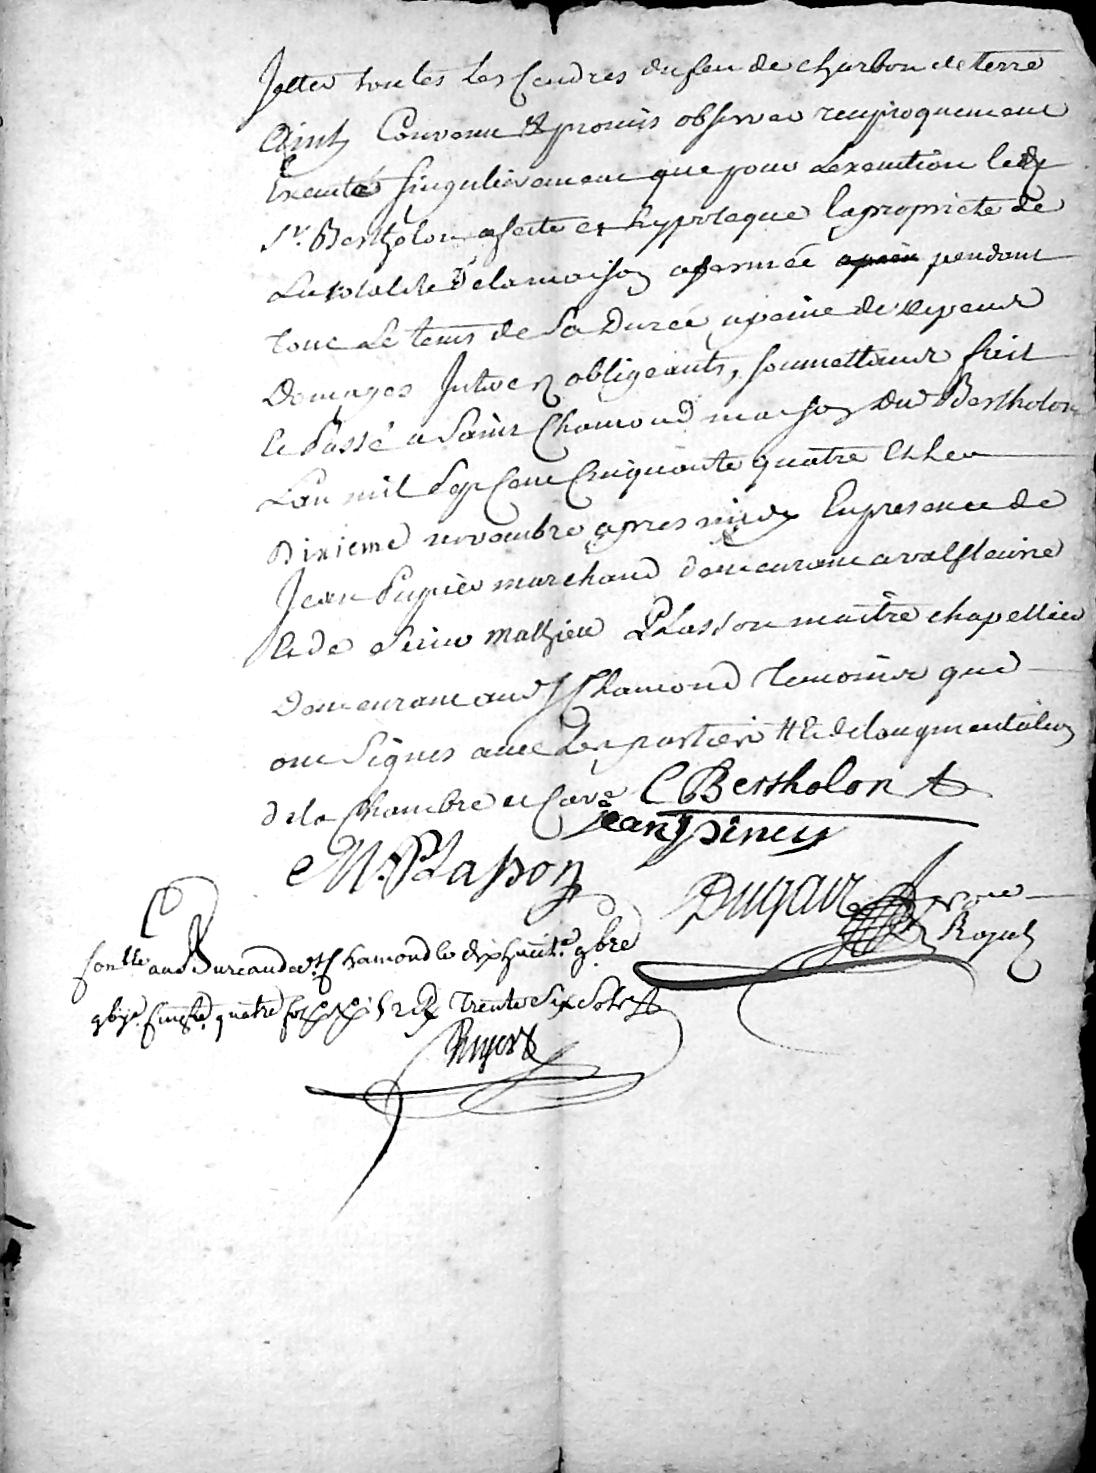 Jetter toutes les Cendres du feu de charbon de terre
Ainsy Convenu & promis observer reciproquement
Executé singulierement que pour Lexecution led
Sr. Bertholon afecte et hypoteque la proprieté de
La totalité de la maison afermée pendant
tout Le tems de Sa Durée a peine de depens
Domages Interes obligeants, soumettans fait
le passé a Saint Chamond maison du Bertholon
L'an mil Sept Cent Cinquante quatre et Le
Dixieme novembre apres midy En presence de
Jean Pupier marchand demeurant a valfleurie
et de Sieur Mathieu Plasson maitre chapellier
Demeurant aud St Chamond Temoins qui
ont Signés avec Les parties # et de laugmentation
de la Chambre et Cave C Bertholon
Jean
M. Plasson
Dugas
Royal
Conlle au Bureau de St Chamond le dix huite 9bre
quatre trente Six Sols